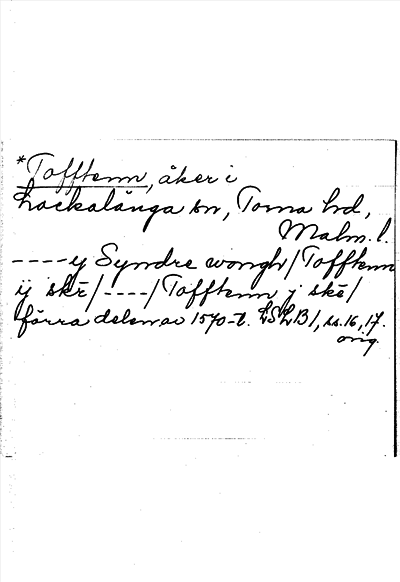 *Tofftenn, åker i
Lackalänga sn, Torna hd,
Malm. l.
----y Syndre wongh/Tofftenn
ij skē/----/Tofftenn j skē/
förra delen av 1570-t. LSLB1, ss. 16, 17.
orig.